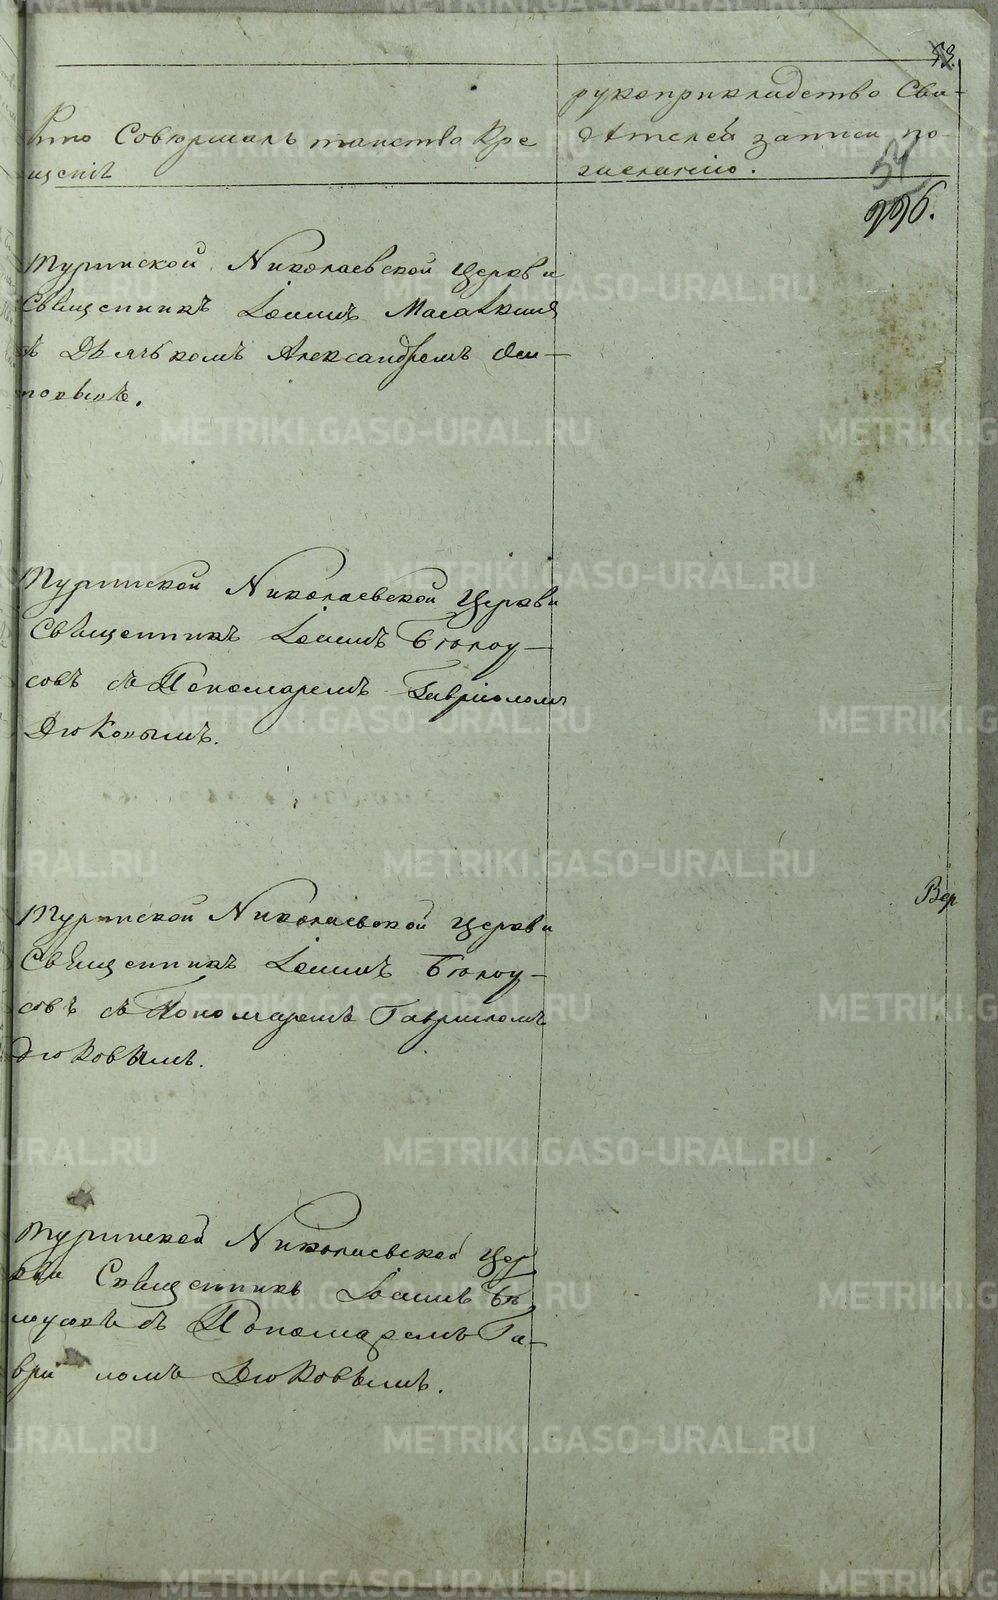 53.
Кто Совершалъ таинство Кре
щенія
рукоприкладство Сви-
дѣтелей записи по
желанію.
54
226.
Туринской Николаевской Церкви
Священникъ Іоаннъ
съ Дьячкомъ Александромъ
Туринской Николаевской Церкви
Священникъ Іоаннъ Бѣлоу-
совъ съ Пономаремъ Гавріиломъ
Дюковымъ.
Туринской Николаевской Церкви
Священникъ Іоаннъ Бѣлоу-
совъ съ Пономаремъ Гавріиломъ
Дюковымъ.
Вер
Туринской Николаевской Цер
кви Священникъ Іоаннъ Бѣ
лоусовъ съ Пономаремъ Га-
вріиломъ Дюковымъ.
METRIKI.GASO-URAL.RU